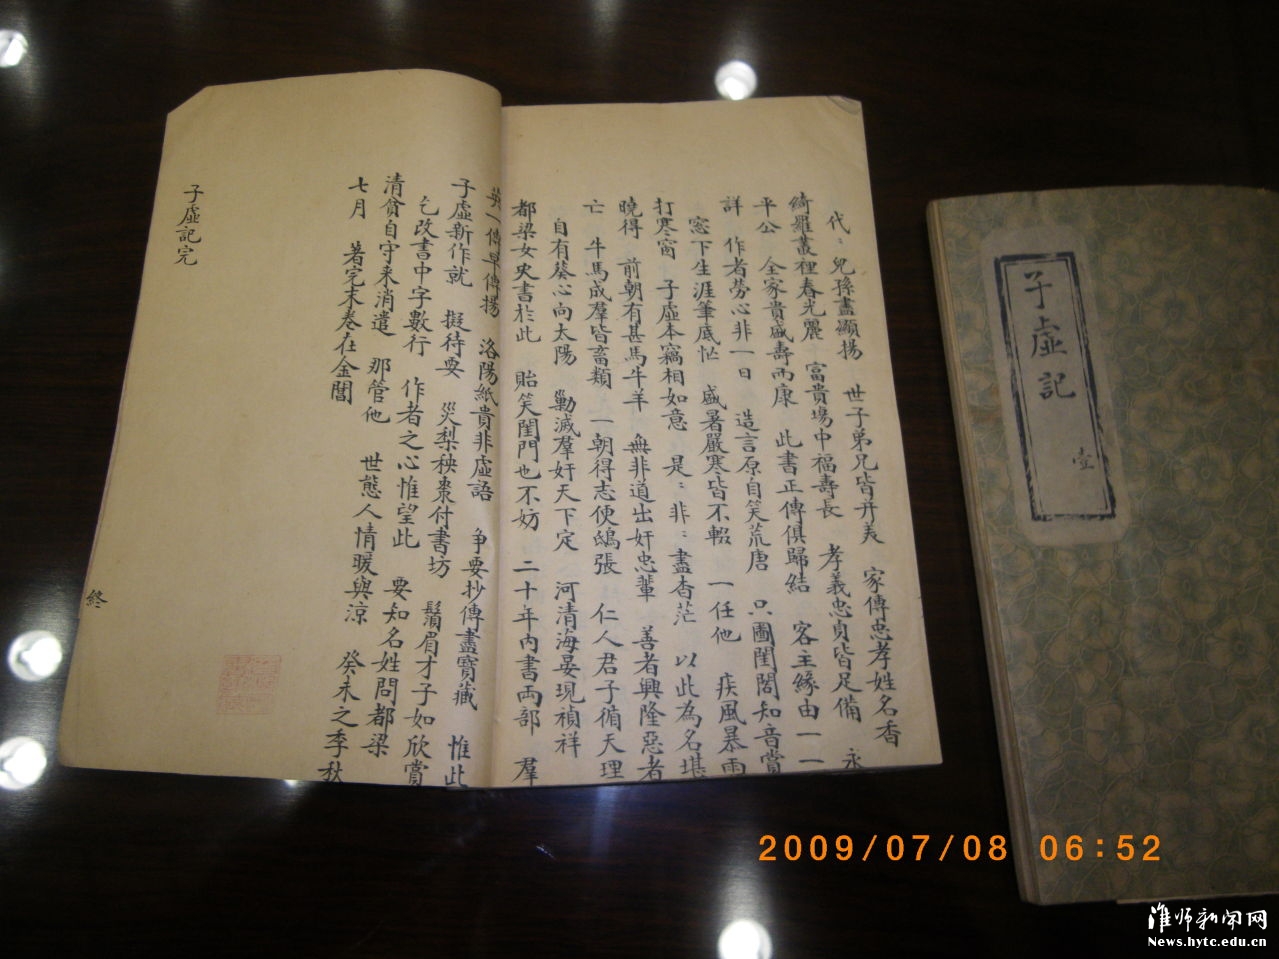 代〻兒孫盡顯揚 世子弟兄皆并美 家傳忠孝姓名香
綺羅叢裡春光麗 富貴場中福壽長 孝義忠貞皆足備 永
平公 全家貴盛壽而康 此書正傳俱歸結 客主緣由一一
詳 作者勞心非一日 造言原自笑荒唐 只圖閨閣知音賞
窓下生涯筆底忙 盛暑嚴寒皆不輟 一任他 疾風暴雨
打寒窗 子虛本竊相如意 是〻非〻盡杳茫 以此為名堪
曉得 前朝有甚馬牛羊 無非道出奸忠輩 善者興隆惡者
亡 牛馬成羣皆畜類 一朝得志便鴟張 仁人君子循天理
自有葵心向太陽 勦滅羣奸天下定 河清海晏現禎祥
都梁女史書於此 貽笑閨門也不妨 二十年內書両部 羣
英一傳早傳揚 洛陽紙貴非虛語 争要抄傳盡寶藏 惟此
子虛新作就 擬待要 災梨秧棗付書坊 鬚眉才子如欣賞
乞改書中字數行 作者之心惟望此 要知名姓問都梁
清貧自守来消遣 那管他 世態人情暖與涼 癸未之季秋
七月 著完末卷在金閶
子虛記完
終
子虛記
壹
2009/07/08 06:52
淮师新闻网
News.hytc.edu.cn